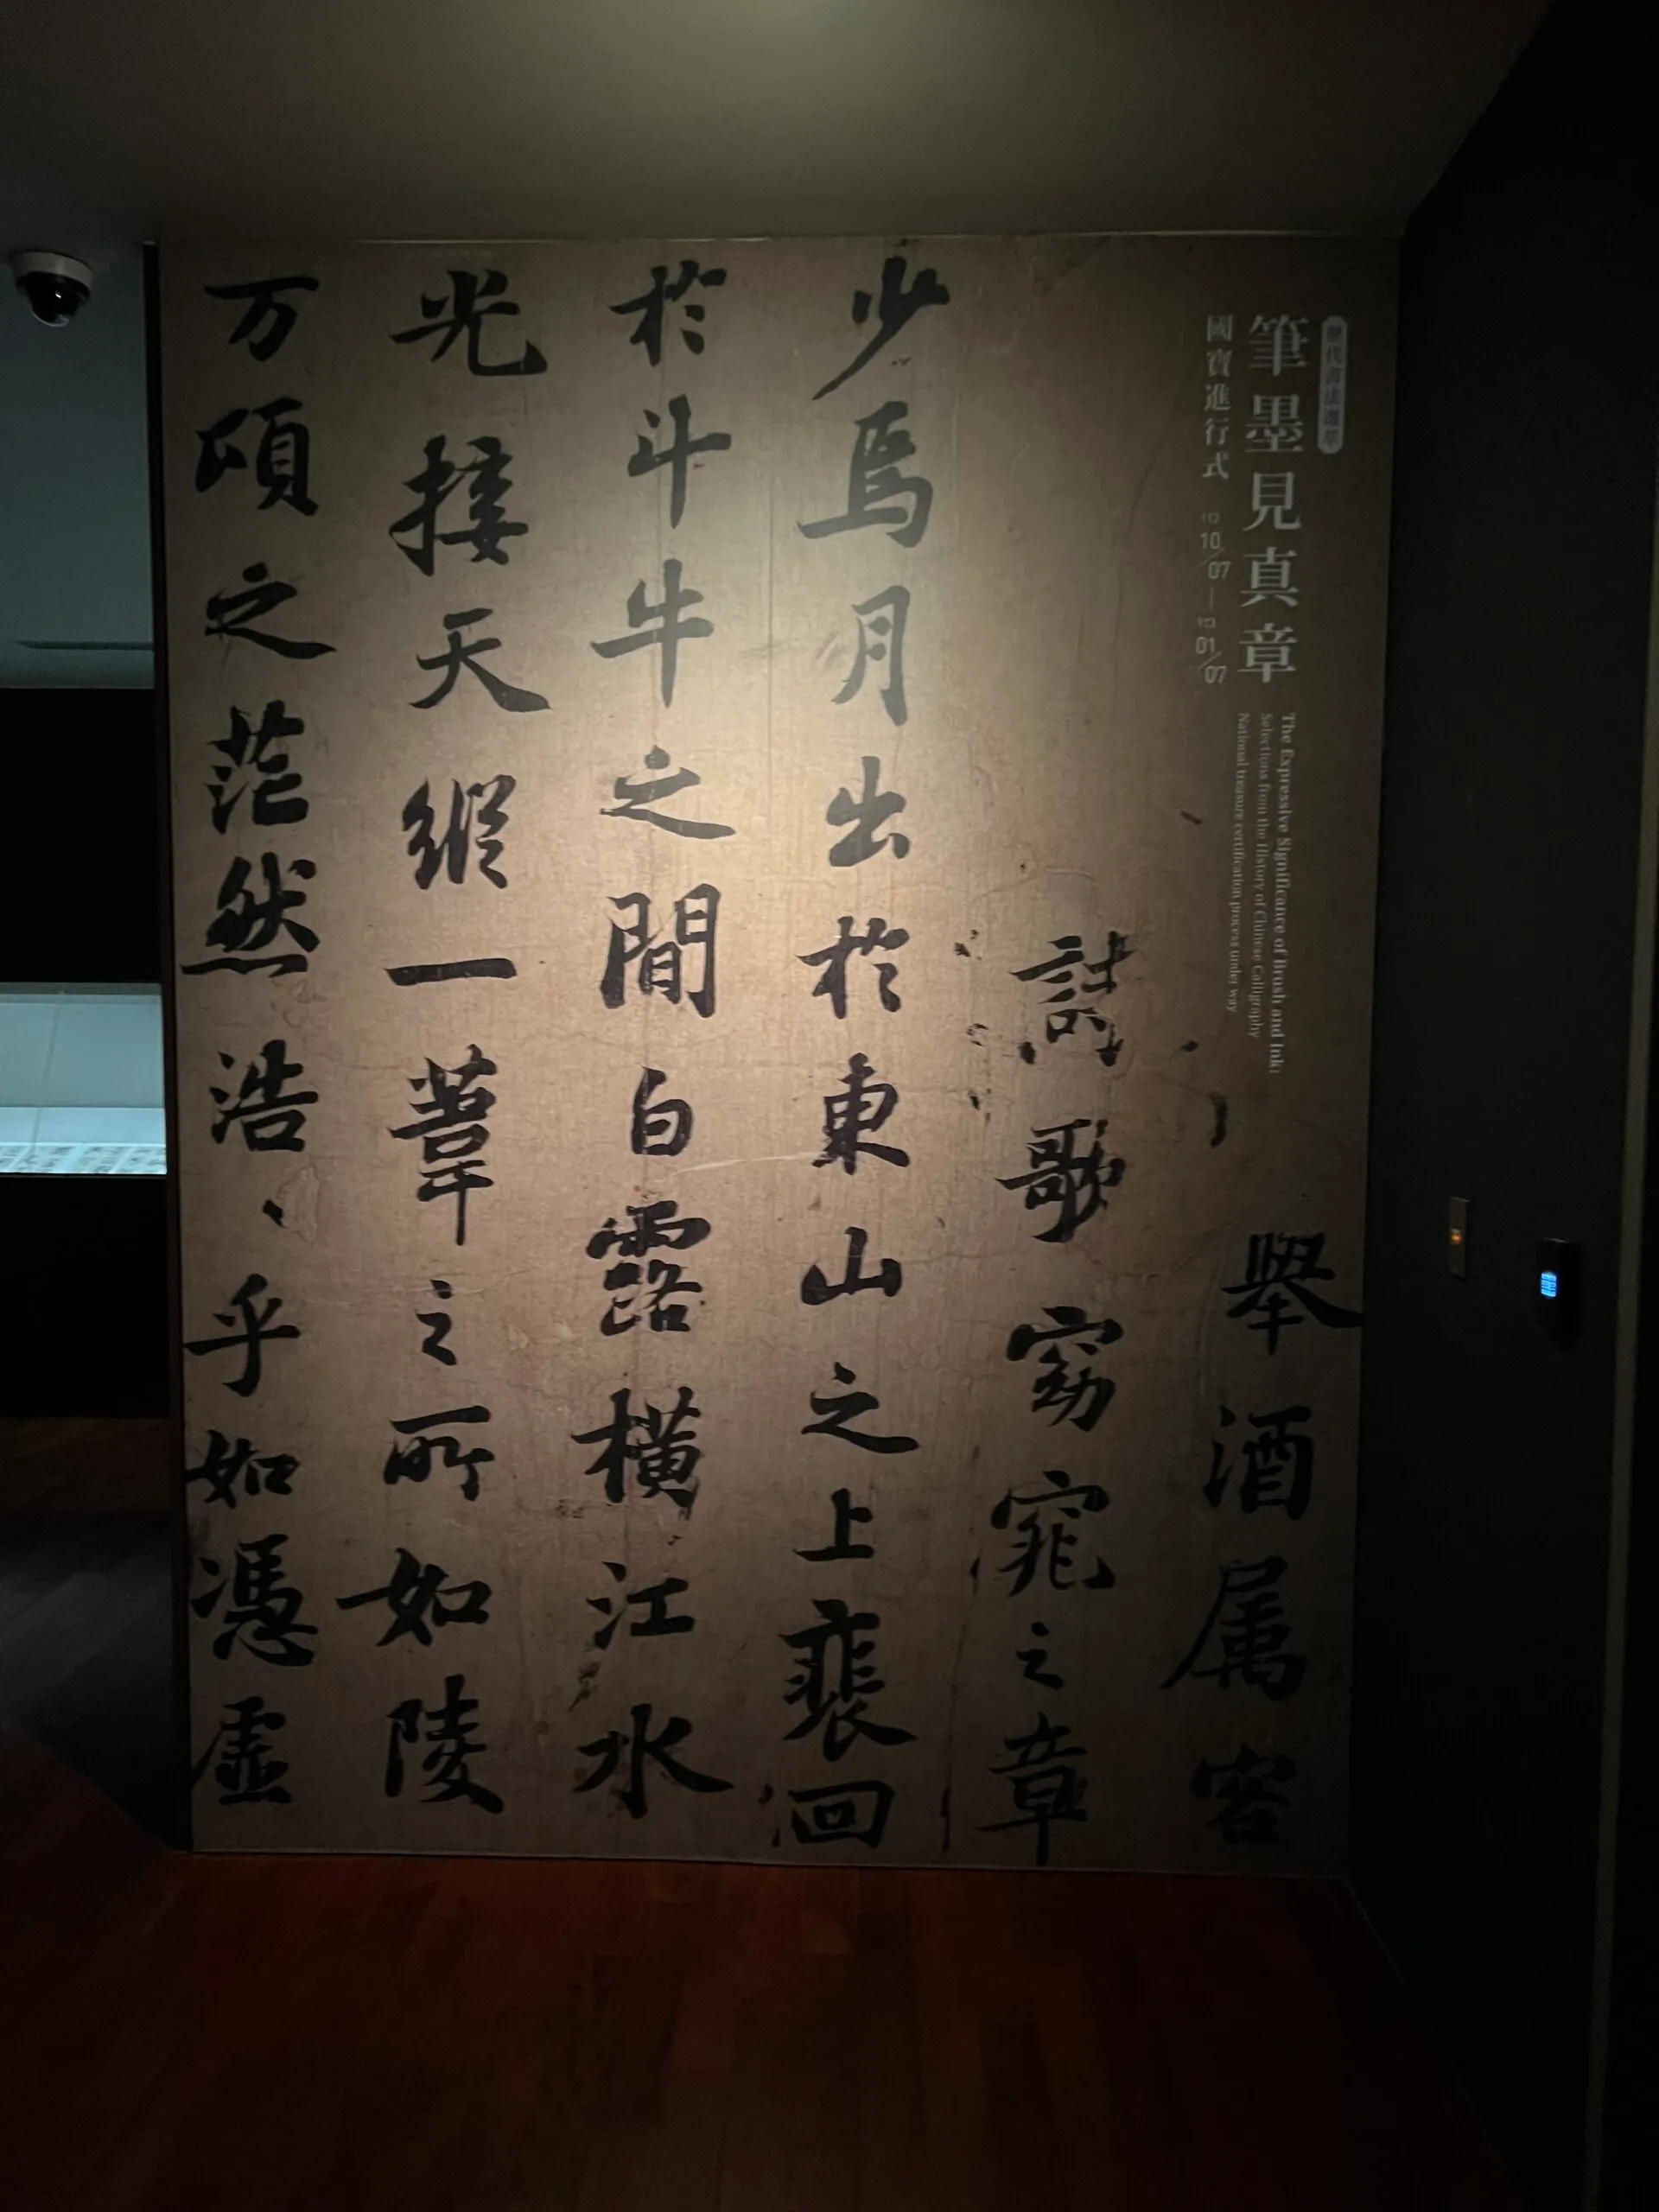 歷代書法選萃
筆墨見真章
國寶進行式
112 10/07—113 01/07
The Expressive Significance of Brush and Ink:
Selections from the History of Chinese Calligraphy
National treasure certification process under way
舉酒属客
誦
歌窈窕之章
少焉月出於東山之上裴回
於斗牛之間白露橫江水
光接天縱一葦之所如陵
万頃之茫然浩、乎如憑虛